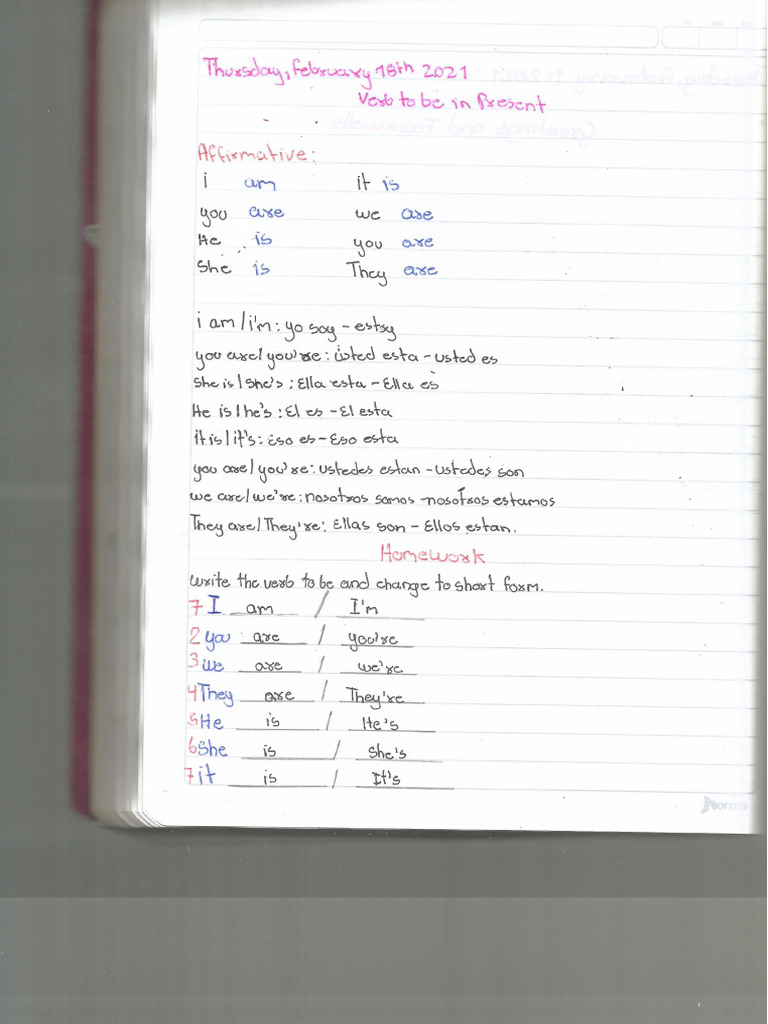 Thursday, February 18th 2021
Verb to be in Present
Affirmative:
i am it is
you are we are
He is you are
She is They are
i am / i'm: yo soy - estsy
you are / you're: usted esta - usted es
She is / She's : Ella esta - Ella es
He is / he's : El es - El esta
It is / it's: eso es - Eso esta
you are / you're: ustedes estan - ustedes son
we are / we're: nosotros somos - nosotros estamos
They are / They're: Ellas son - Ellos estan.
Homework
Write the verb to be and change to short form.
1 I am / I'm
2 you are / you're
3 we are / we're
4 They are / They're
5 He is / He's
6 She is / She's
7 it is / It's
Norma